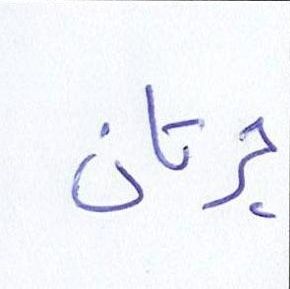 جرتان